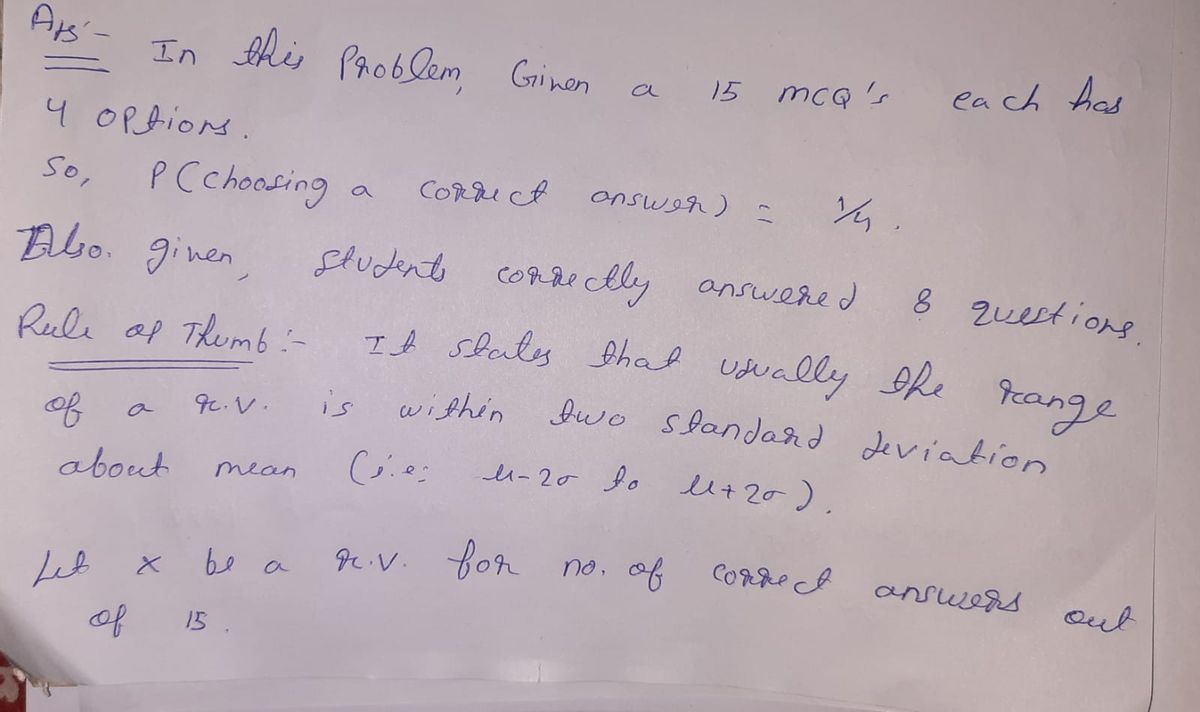 Ans:-
In this Problem, Given a 15 mcq's each has
4 options.
So, P(choosing a correct answer) = 1/4.
Also. given, students correctly answered 8 questions.
Rule of Thumb:- It states that usually the range
of a r.v. is within two standard deviation
about mean (i.e: μ-2σ to μ+2σ).
Let x be a r.v. for no. of correct answers out
of 15.